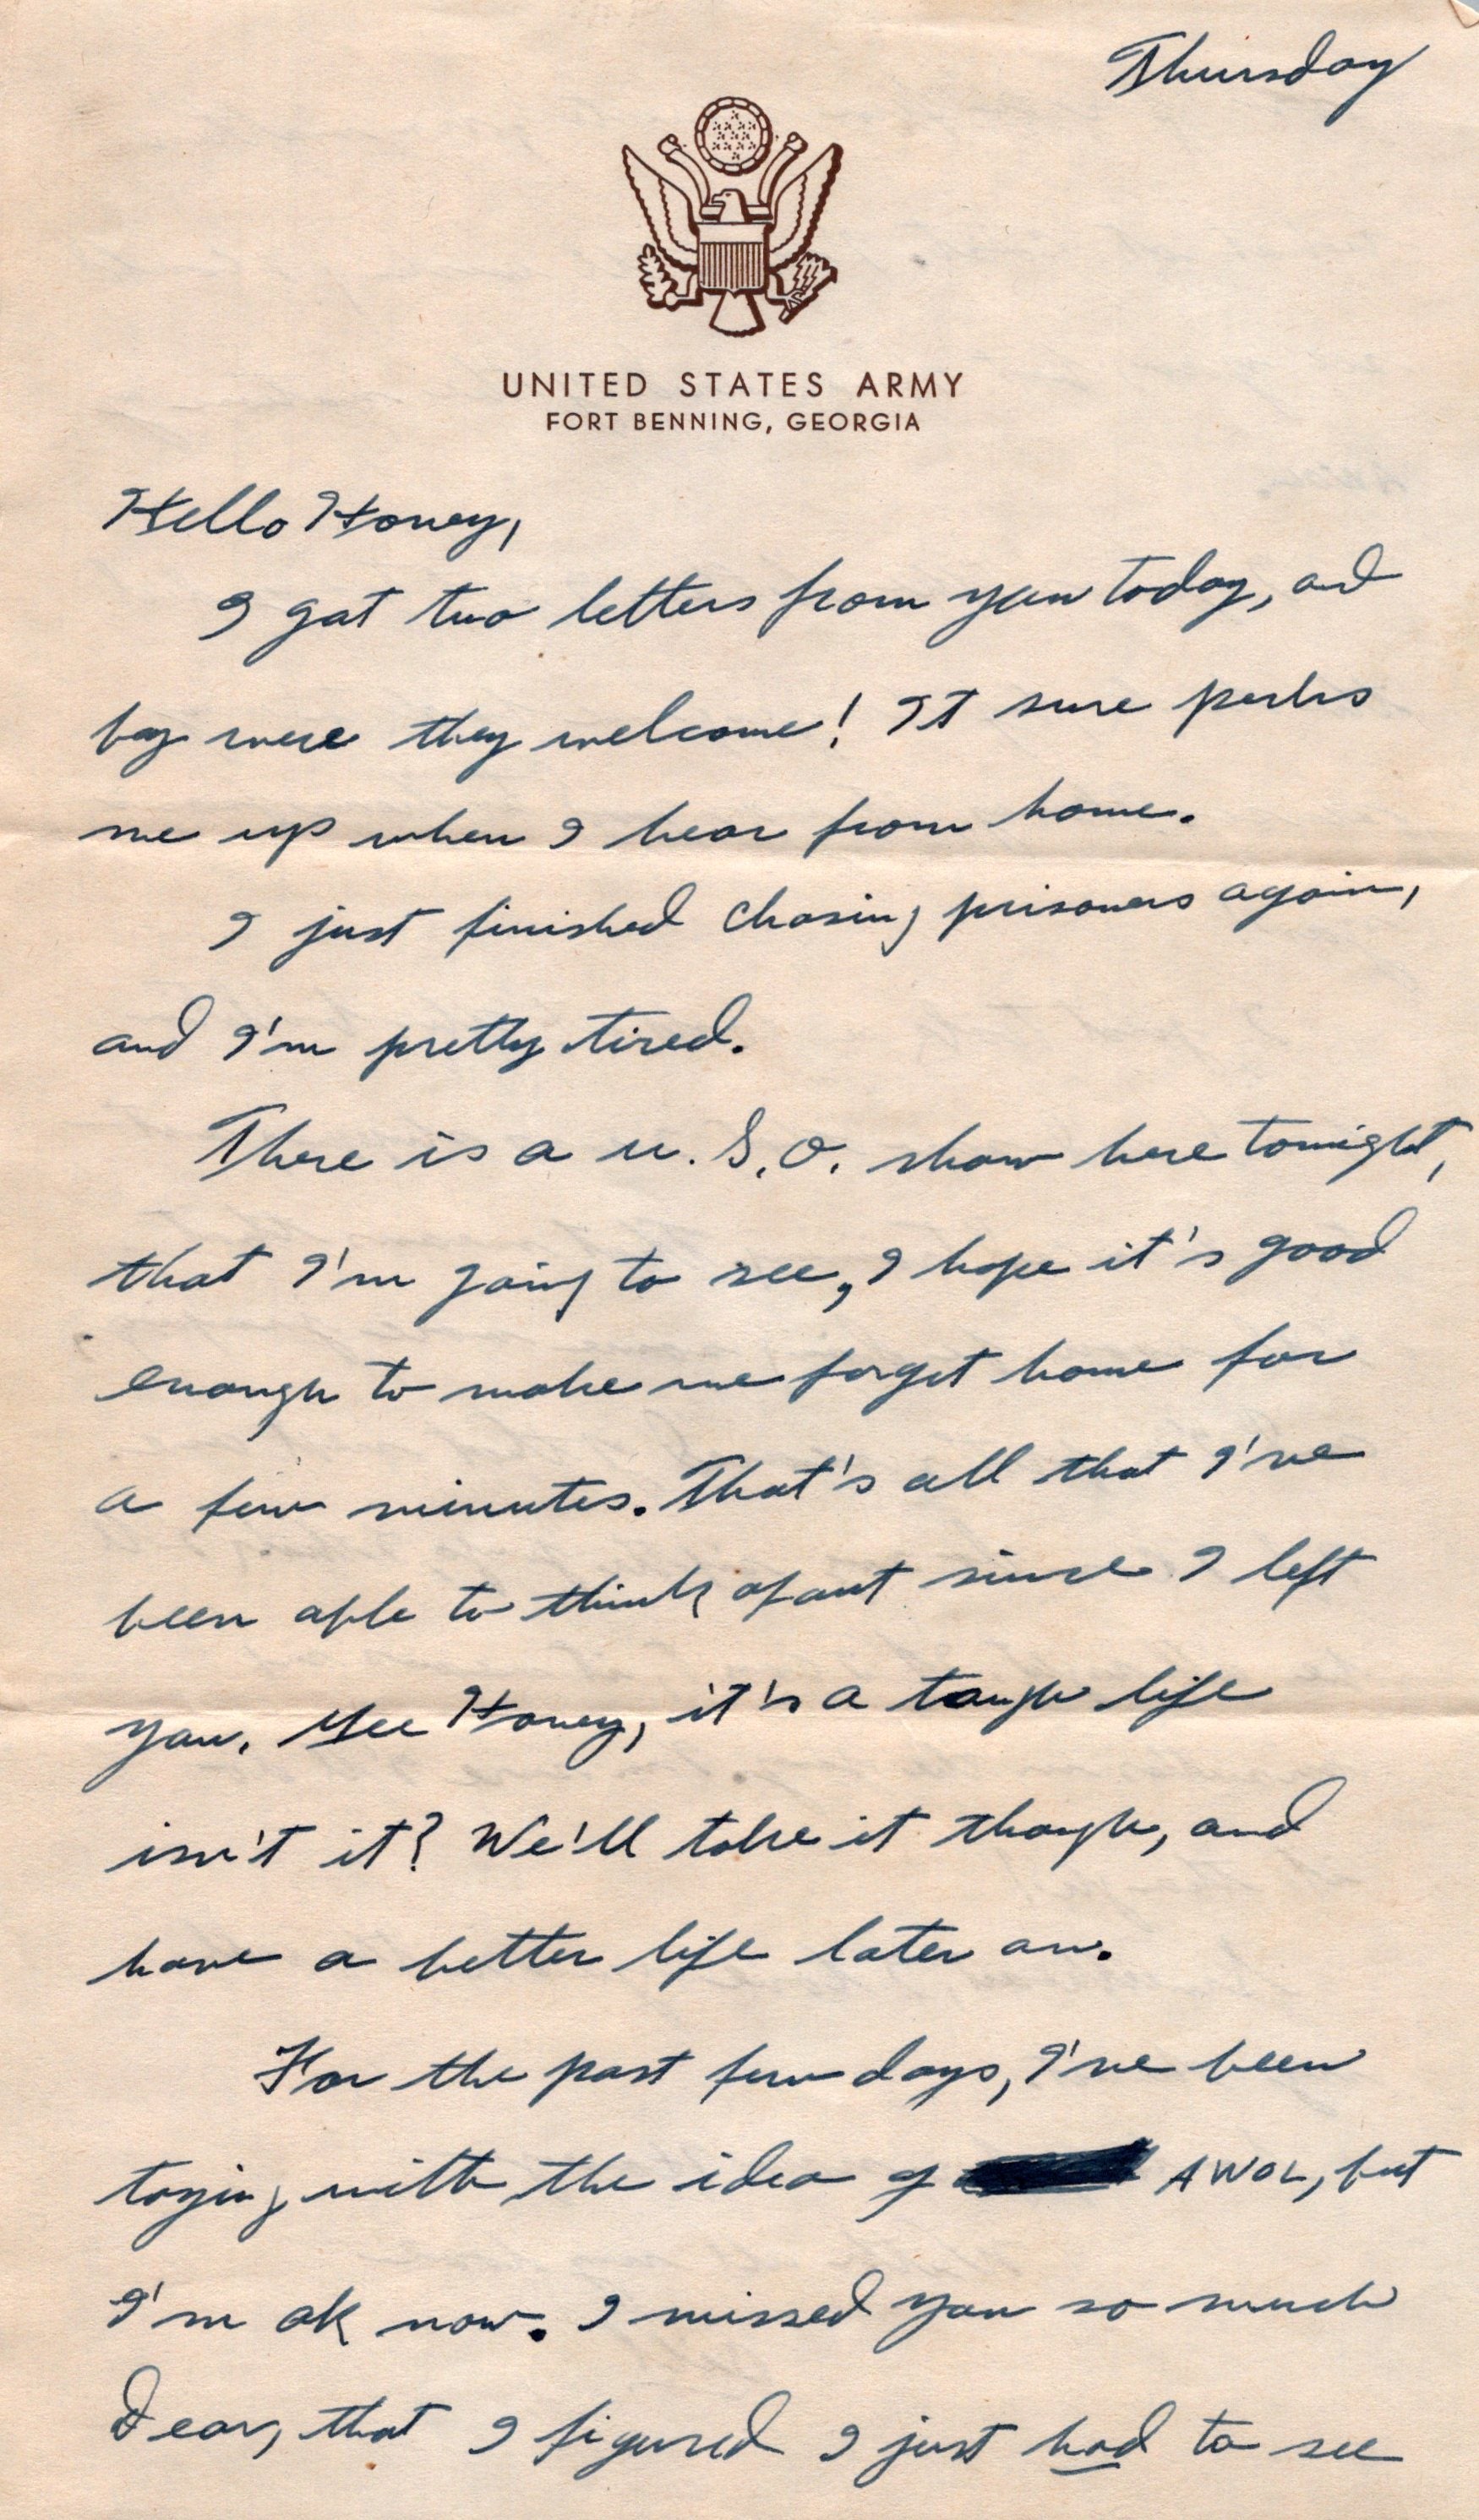 Thursday
UNITED STATES ARMY
FORT BENNING, GEORGIA
Hello Honey,
I got two letters from you today, and
boy were they welcome! It sure perks
me up when I hear from home.
I just finished chasing prisoners again,
and I'm pretty tired.
There is a U.S.O. show here tonight,
that I'm going to see, I hope it's good
enough to make me forget home for
a few minutes. That's all that I've
been able to think about since I left
you. Gee Honey, it's a tough life
isn't it? We'll take it though, and
have a better life later on.
For the past few days, I've been
toying with the idea of AWOL, but
I'm ok now. I missed you so much
Dear, that I figured I just had to see